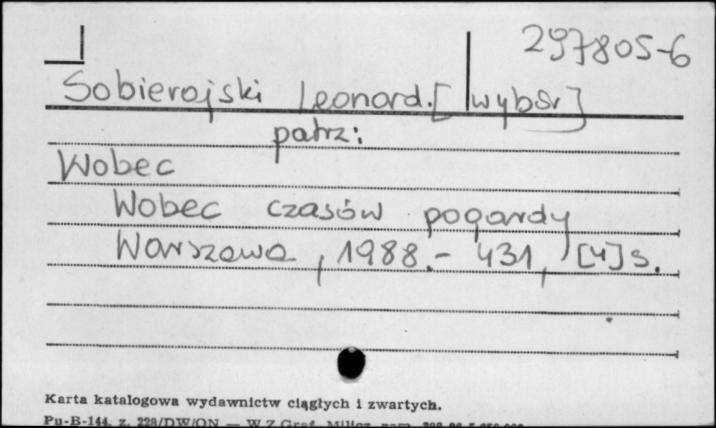 297805-6
Sobierajski Leonard. [wybór]
patrz:
Wobec
Wobec czasów pogardy
Warszawa, 1988.- 431, [4] s.
Karta katalogowa wydawnictw ciągłych i zwartych.
Pu-B-144, z. 228/DW/ON — W.Z.Graf. Milicz, zam.